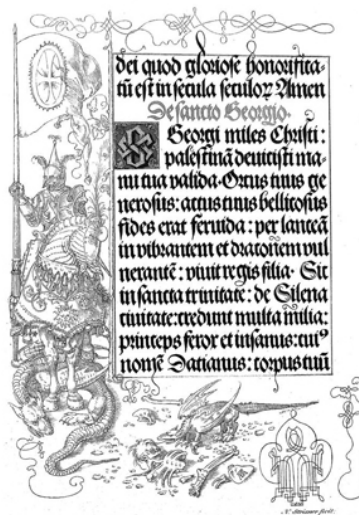 dei quod gloriose honorifita-
tū est in secula seculoꝝ Amen
De sancto Georgio.
Georgi miles Christi:
palestinā deuicisti ma-
nu tua valida. Ortus tuus ge
nerosus: actus tuus bellicosus
fides erat feruida: per lanceā
in vibrantem et draconem vul
nerantē: viuit regis filia. Sit
in sancta trinitate: de Silena
ciuitate: credunt multa milia:
princeps ferox et insanus: cuiꝰ
nomē Datianus: corpus tuū
N. Strixner fecit.